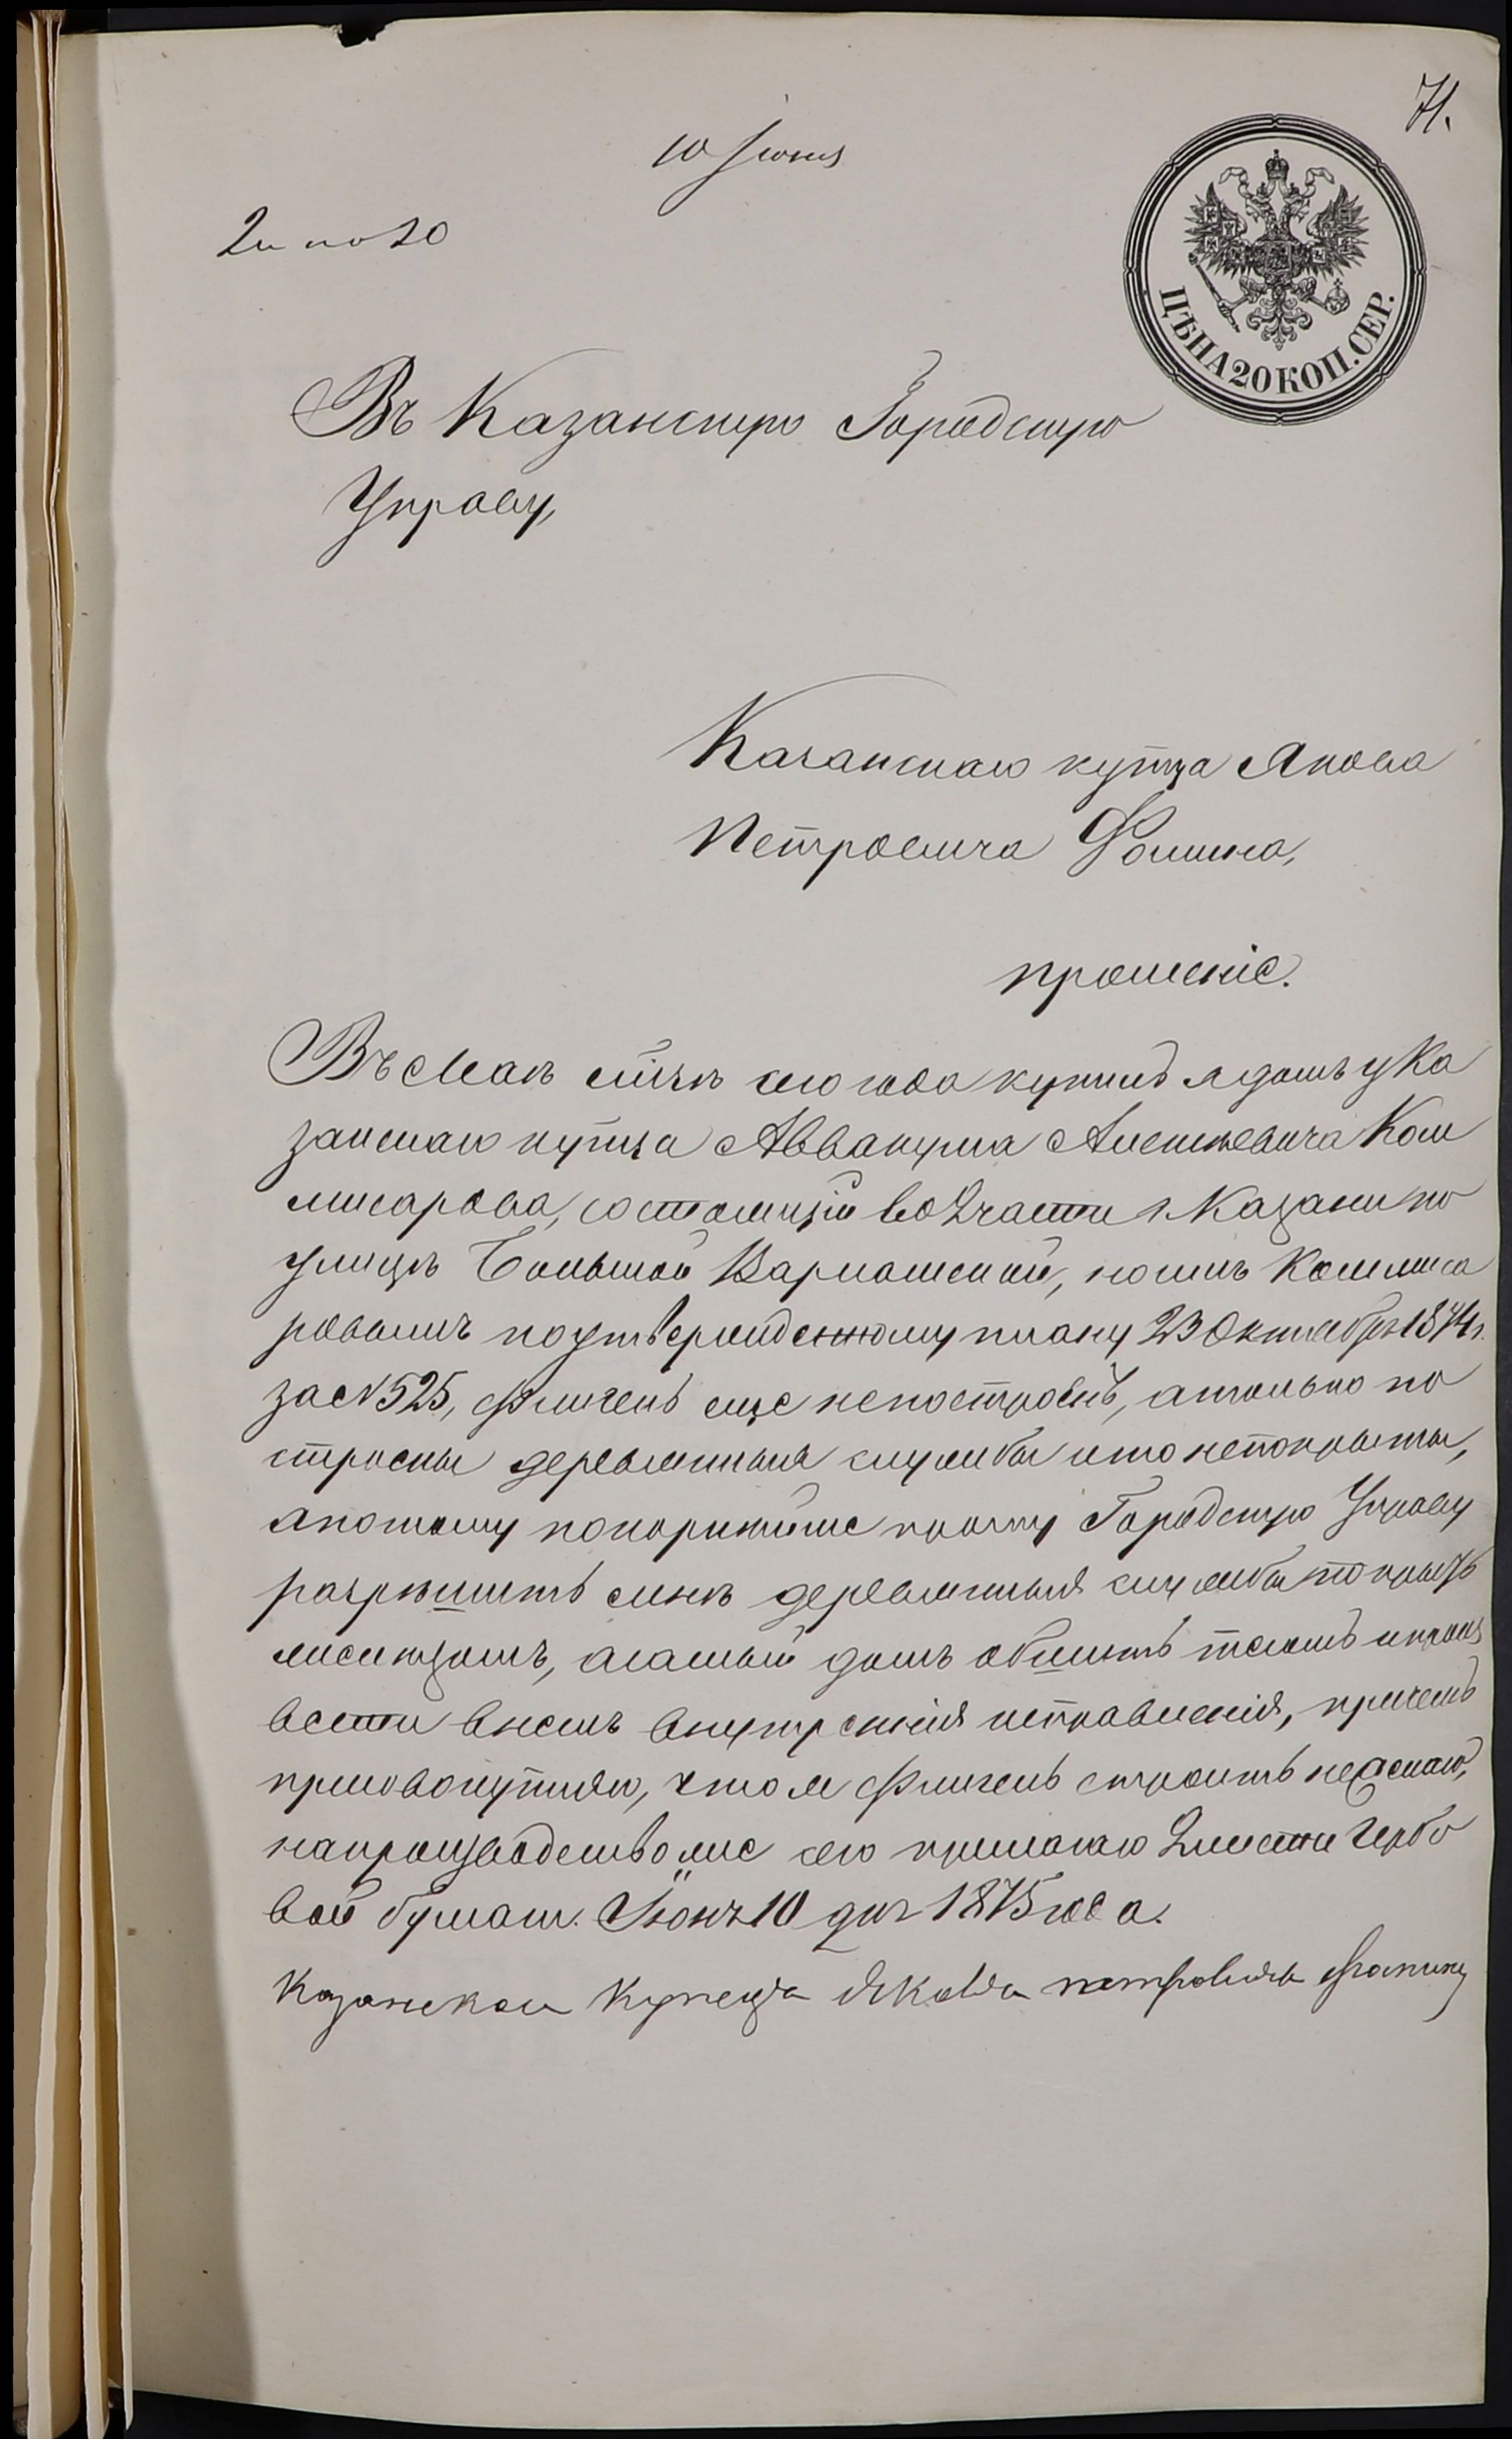 71.
10 Іюня
2 и по 20
ЦѢНА 20 КОП. СЕР.
Въ Казанскую Городскую
Управу,
Казанскаго купца Якова
Петровича Фомина,
прошеніе.
Въ Маѣ м-цѣ сего года купилъ я домъ у Ка
занскаго купца Аввакума Алексѣевича Ком
мисарова, состоящій во 2 части г. Казани по
улицѣ Большой Варламской, но имъ Коммиса
ровымъ по утвержденному плану 23 Октября 1874 г.
за № 525, флигель еще непостроенъ, а только по
строены деревянныя службы и то непокрыты,
а потому покорнѣйше прошу Городскую Управу
разрѣшить мнѣ деревянныя службы покрыть
желѣзомъ, а самый домъ обшить тесомъ и произ
вести внемъ внутреннія исправленія, причемъ
присовокупляю, что я флигель строить нежелаю,
на производство же сего прилагаю 2 листа гербо
вой бумаги. Іюня 10 дня 1875 года.
Казанскои Купецъ Яковъ петровичь Фоминъ